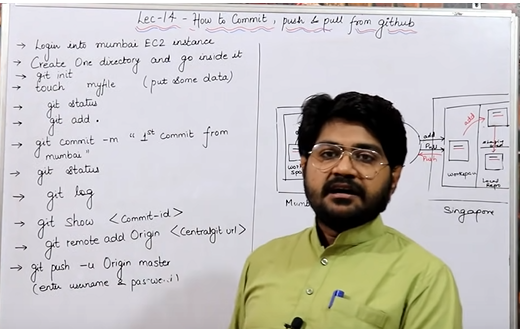 Lec-14 - How to Commit, push & pull from github
→ Login into mumbai EC2 instance
→ Create One directory and go inside it
→ git init
→ touch myfile (put some data)
→ git status
→ git add .
→ git commit -m " 1st Commit from
mumbai"
→ git status
→ git log
→ git show <Commit-id>
→ git remote add Origin <Centralgit url>
→ git push -u Origin master
(enter username &
add
add
Pull
Push
Workspace
Local
Repo
Singapore